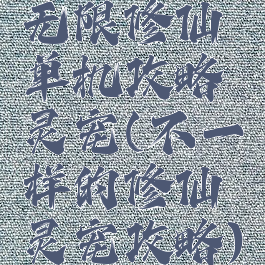 无限修仙
单机攻略
灵宠(不一
样的修仙
灵宠攻略)